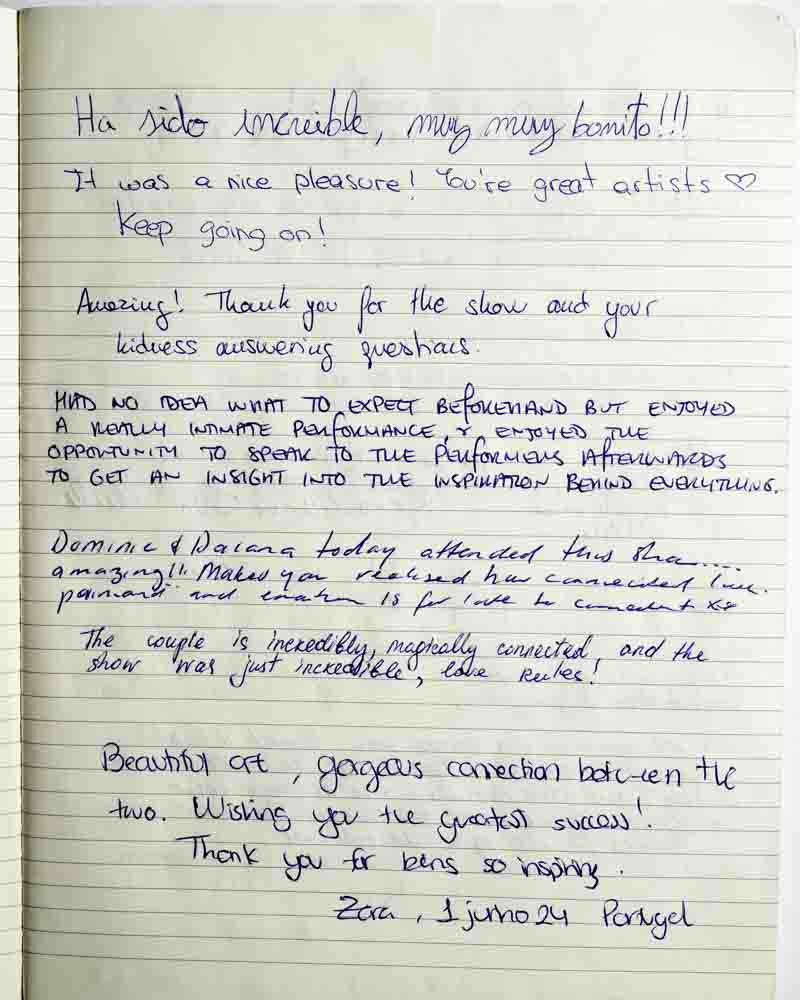 Ha sido increible, muy muy bonito!!!
It was a nice pleasure! You're great artists ♡
Keep going on!
Amazing! Thank you for the show and your
kidness answering questions.
HAD NO IDEA WHAT TO EXPECT BEFOREHAND BUT ENJOYED
A REALLY INTIMATE PERFORMANCE, & ENJOYED THE
OPPORTUNITY TO SPEAK TO THE PERFORMERS AFTERWARDS
TO GET AN INSIGHT INTO THE INSPIRATION BEHIND EVERYTHING.
Dominic & Daiana today attended this show....
amazing!! Makes you realised how connected love
and is for
The couple is incredibly, magically connected, and the
show was just incredible, love rules!
Beautiful art, gorgeous connection between the
two. Wishing you the greatest success!
Thank you for being so inspiring.
Zara, 1 junho 24 Portugal